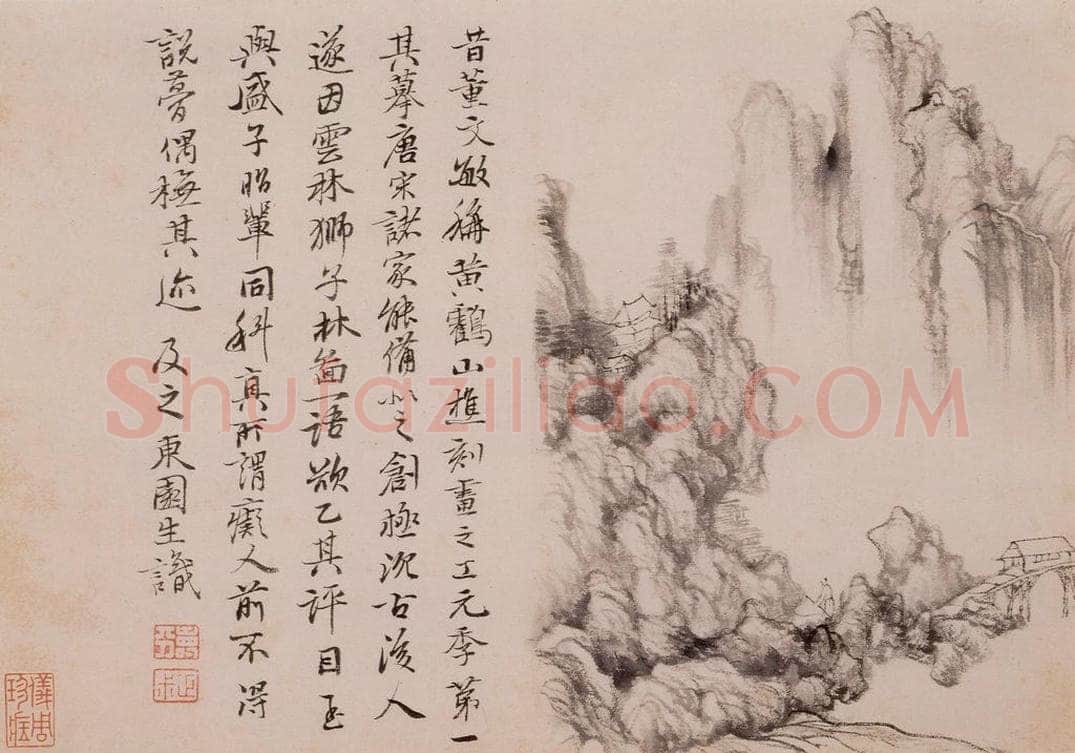 昔董文敏稱黄鶴山樵刻畫之工元季第一
其摹唐宋諸家能備之創極沉古後人
遂因雲林獅子林啚一語欲乙其評目至
與盛子昭輩同科真所謂癡人前不得
説夢偶橅其迹 及之東園生識
壽平
正叔
儀周珍藏
Shufaziliao.COM